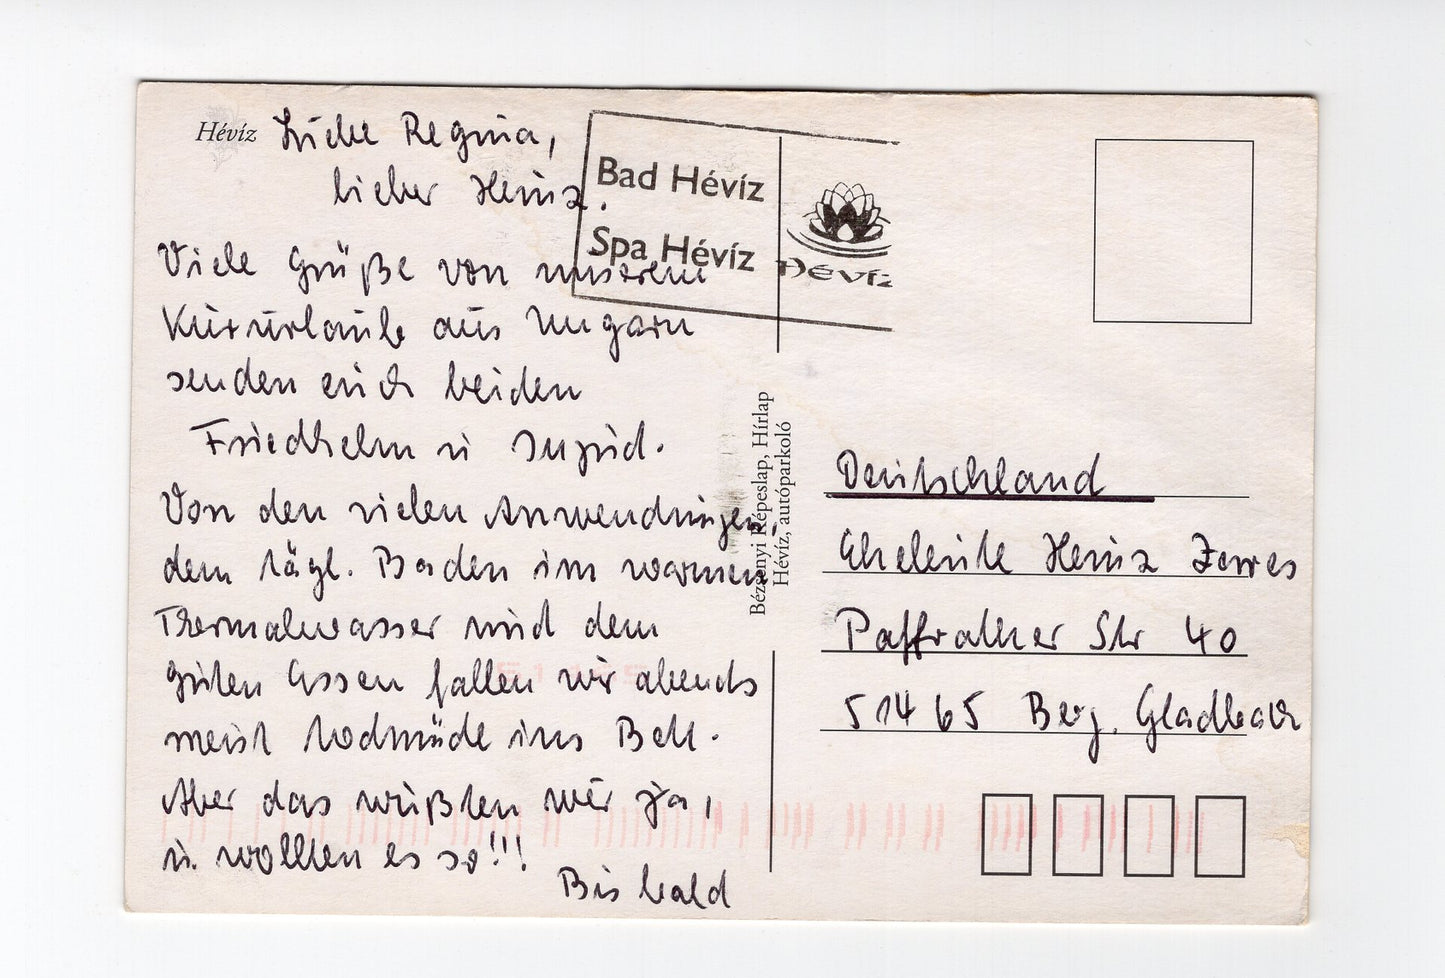 Hévíz
Liebe Regina,
lieber Heinz.
Viele Grüße von unserem
Kururlaub aus Ungarn
senden euch beiden
Friedhelm u Ingrid.
Von den vielen Anwendungen,
dem tägl. Baden im warmen
Thermalwasser und dem
guten Essen fallen wir abends
meist todmüde ins Bett.
Aber das wußten wir ja,
u. wollten es so!!!
Bis bald
Bad Hévíz
Spa Hévíz
Hévíz
Bézsenyi Képeslap, Hírlap
Hévíz, autóparkoló
Deutschland
Eheleute Heinz Zerres
Paffrather Str 40
51465 Berg. Gladbach